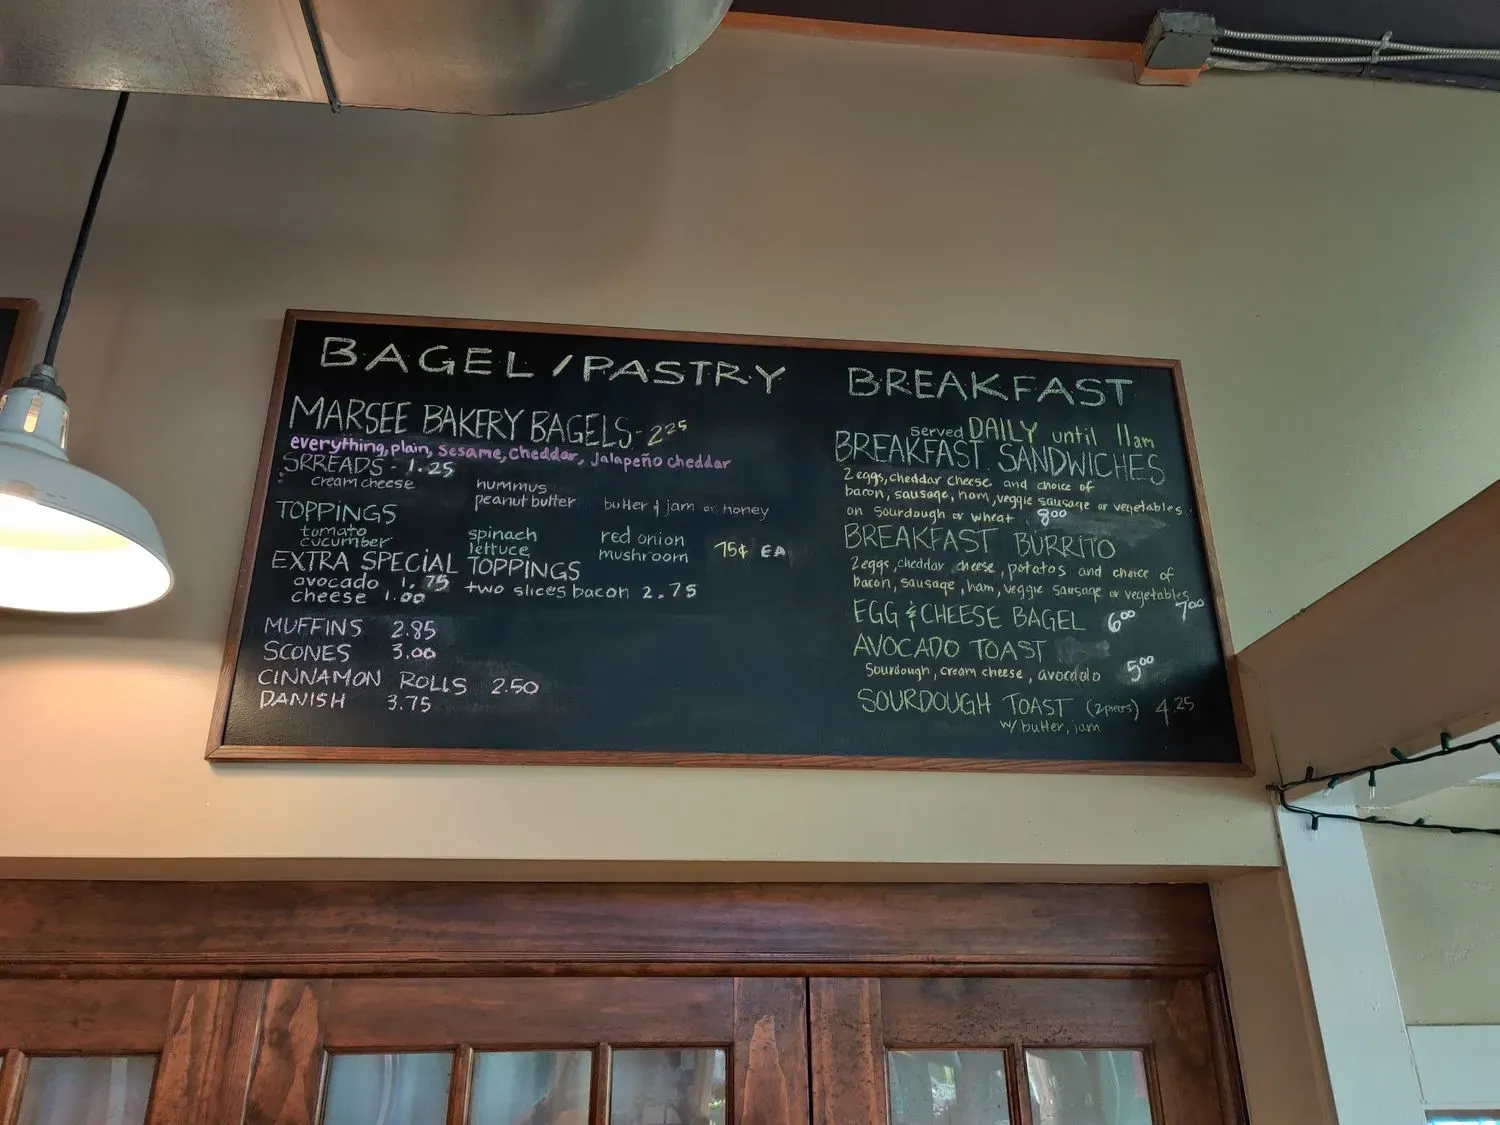 BAGEL / PASTRY
MARSEE BAKERY BAGELS - 2.25
everything, plain, sesame, cheddar, jalapeño cheddar
SPREADS - 1.25
cream cheese
hummus
peanut butter
butter & jam or honey
TOPPINGS
tomato
cucumber
spinach
lettuce
red onion
mushroom
75¢ EA
EXTRA SPECIAL TOPPINGS
avocado 1.75
cheese 1.00
two slices bacon 2.75
MUFFINS 2.85
SCONES 3.00
CINNAMON ROLLS 2.50
DANISH 3.75
BREAKFAST
served DAILY until 11am
BREAKFAST SANDWICHES
2 eggs, cheddar cheese and choice of
bacon, sausage, ham, veggie sausage or vegetables
on sourdough or wheat 8.00
BREAKFAST BURRITO
2 eggs, cheddar cheese, potatos and choice of
bacon, sausage, ham, veggie sausage or vegetables
7.00
EGG & CHEESE BAGEL 6.00
AVOCADO TOAST
sourdough, cream cheese, avocado 5.00
SOURDOUGH TOAST 4.25
w/ butter, jam